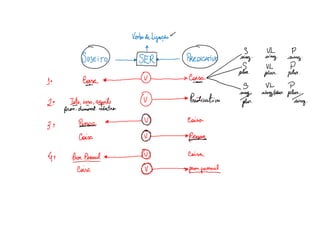 Verbo de Ligação
Sujeito SER Predicativo
S VL P
sing sing sing
1- Coisa V Coisa
S VL P
plur plur plur
S VL P
sing sing/plur plur
plur sing
2- Tudo, isso, aquilo V Predicativo
Pron. demonst. neutro
3- Pessoa V Coisa
Coisa V Pessoa
4- Pron Pessoal V Coisa
Coisa V pron pessoal